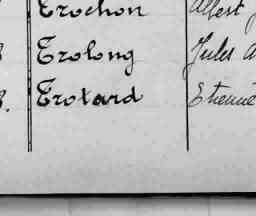 Trochon Albert
Trolong Jules A
Trotard Etienne